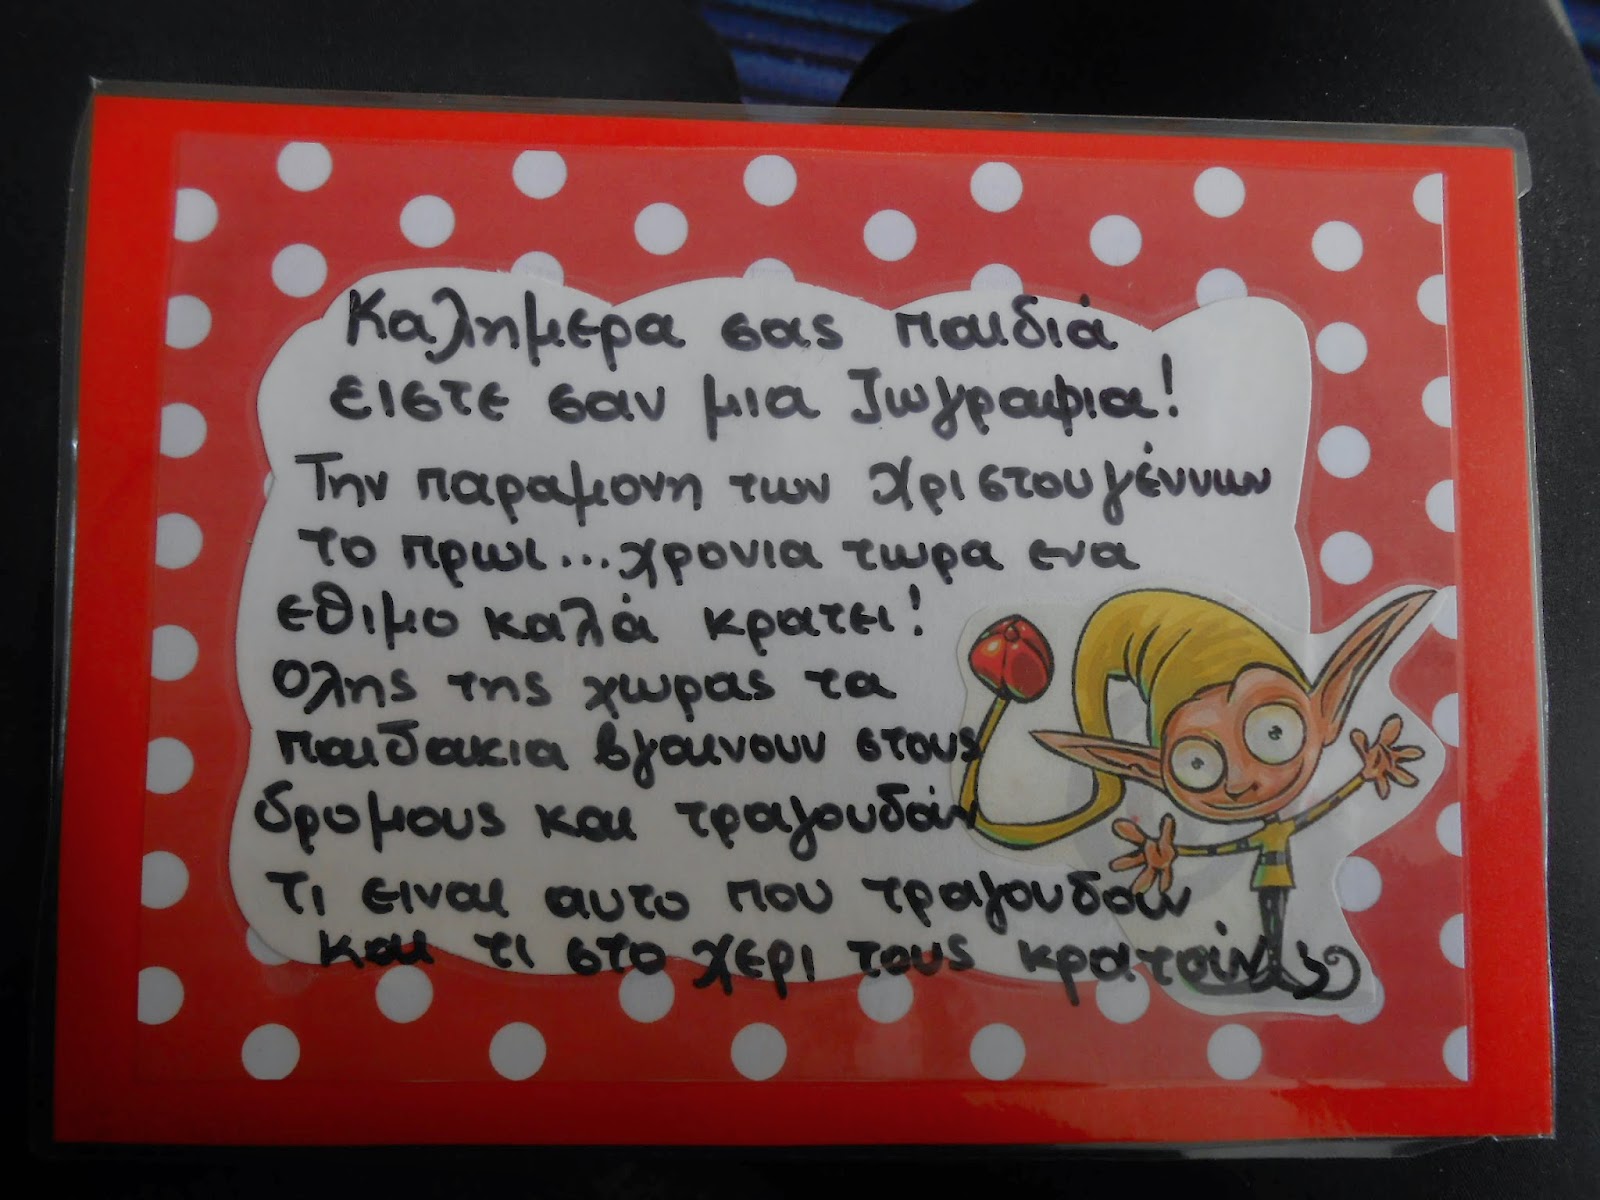 Καλημερα σας παιδιά
ειστε σαν μια ζωγραφια!
Την παραμονη των Χριστουγέννων
το πρωι...χρονια τωρα ενα
εθιμο καλά κρατει!
Ολης της χωρας τα
παιδακια βγαινουν στους
δρομους και τραγουδάν
τι ειναι αυτο που τραγουδούν
και τι στο χερι τους κρατούν;